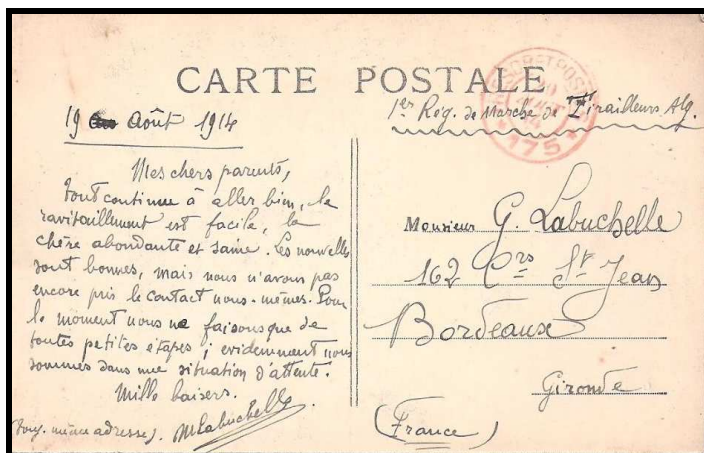 CARTE POSTALE
19 Août 1914
1er Rég. de Marche de Tirailleurs Alg.
175
Mes chers parents,
Tout continue à aller bien, le
ravitaillement est facile, la
chère abondante et saine. Les nouvelles
sont bonnes, mais nous n'avons pas
encore pris le contact nous-mêmes. Pour
le moment nous ne faisons que de
toutes petites étapes ; evidemment nous
sommes dans une situation d'attente.
Mille baisers.
(Touj. même adresse). MLabuchelle
Monsieur G. Labuchelle
162 Crs St Jean
Bordeaux
Gironde
(France)